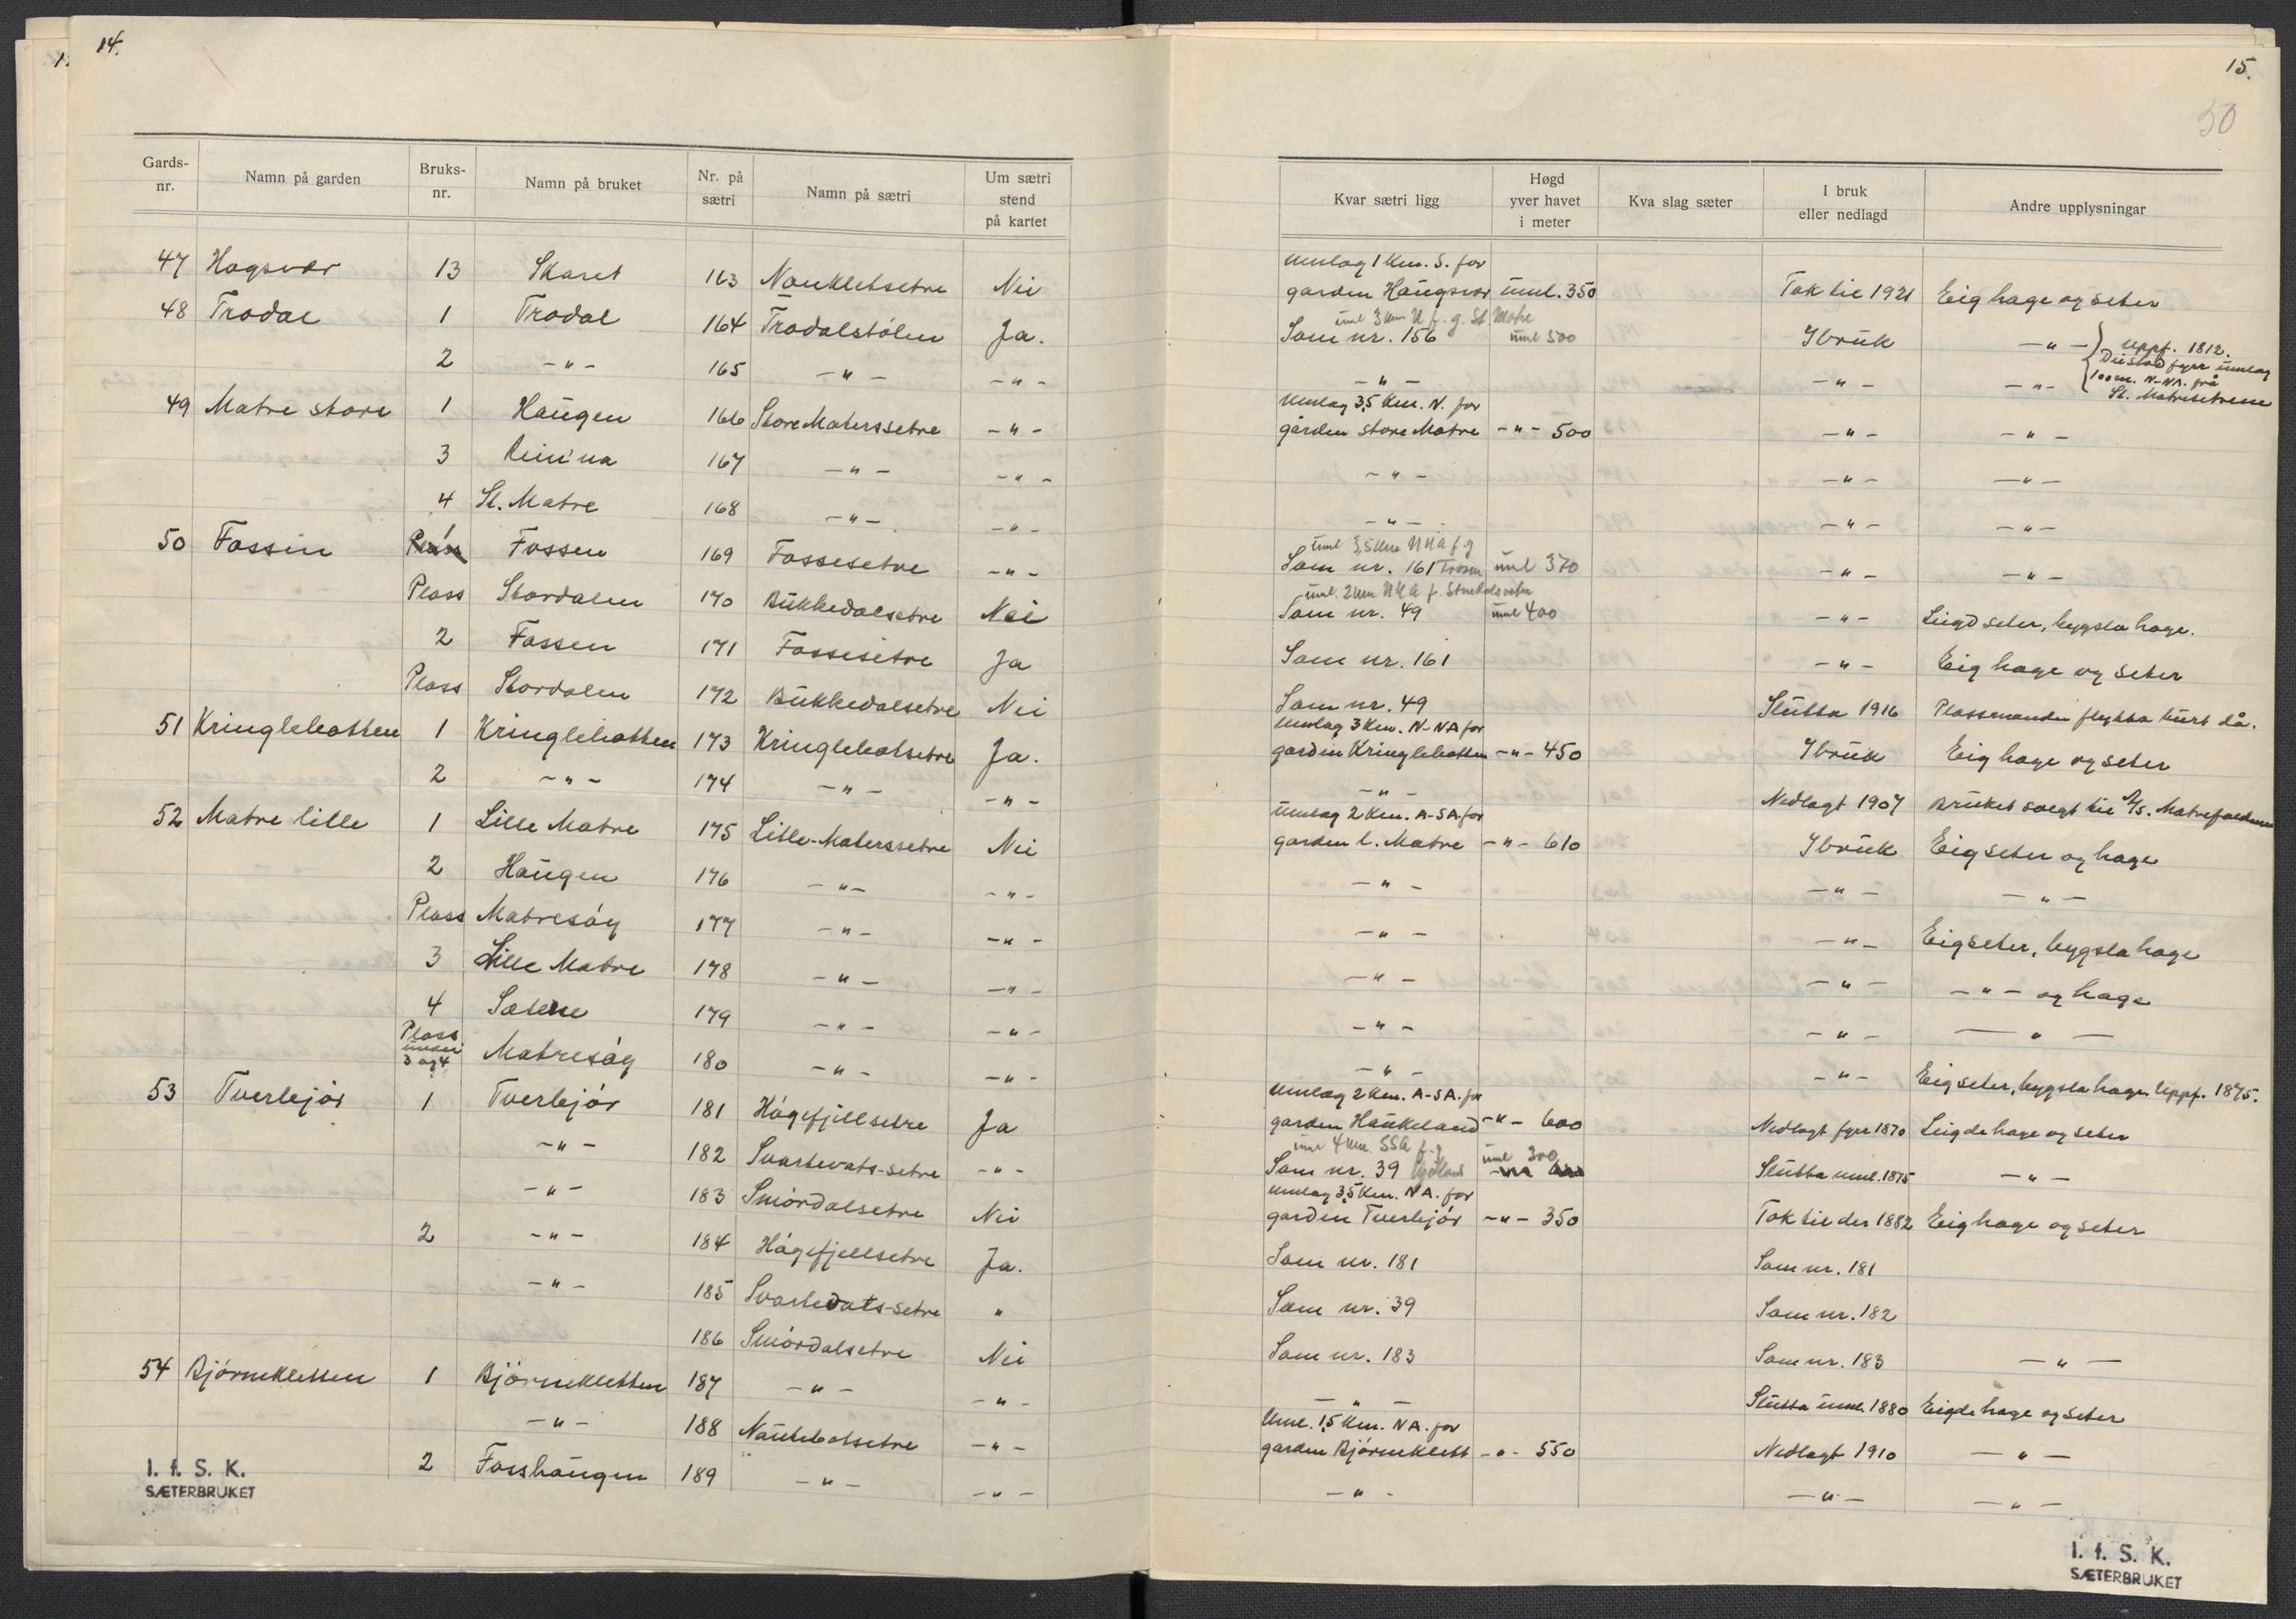 14.
Gards-nr. | Namn på garden | Bruks-nr. | Namn på bruket | Nr. på sætri | Namn på sætri | Um sætri stend på kartet
47 Hogsvær 13 Skaret 163 Naukletsetre Nei
48 Trodal 1 Trodal 164 Trodalstølen Ja.
2 -"- 165 -"- -"-
49 Matre store 1 Haugen 166 Store Materssetre -"-
3 167 -"- -"-
4 St. Matre 168 -"- -"-
50 Fossen 1 Fossen 169 Fossesetre -"-
Plass Stordalen 170 Bukkedalsetre Nei
2 Fossen 171 Fossesetre Ja
Plass Stordalen 172 Bukkedalsetre Nei
51 Kringlebotten 1 Kringlebotten 173 Kringlebotsetre Ja.
2 -"- 174 -"- -"-
52 Matre lille 1 Lille Matre 175 Litle-Materssetre Nei
2 Haugen 176 -"- -"-
Plass Matresøy 177 -"- -"-
3 Lille Matre 178 -"- -"-
4 179 -"- -"-
Plass under 3 og 4 Matresøy 180 -"- -"-
53 Tverlejør 1 Tverlejør 181 Høgefjellsetre Ja
-"- 182 Svartevats-setre -"-
-"- 183 Smørdalsetre Nei
2 -"- 184 Høgefjellsetre Ja.
-"- 185 Svartevats-setre "
186 Smørdalsetre Nei
54 Bjørnekletten 1 Bjørnekletten 187 -"- -"-
-"- 188 Naukletsetre -"-
2 Fosshaugen 189 -"- -"-
I. f. S. K.
SÆTERBRUKET
15.
50
Kvar sætri ligg | Høgd yver havet i meter | Kva slag sæter | I bruk eller nedlagd | Andre upplysningar
Umlag 1 Km. S. for
garden Haugsvær uml. 350 Tok til 1921 Eig hage og seter
uml 3 km N f. g. St. Matre
Som nr. 156 uml 500 I bruk -"- } Uppf. 1812.
-"- -"- -"- { fyrr umlag
100 m. N-NA. frå
St. Matresetrene
Umlag 3,5 Km. N. for
garden store Matre -"- 500 -"- -"-
-"- -"- -"-
-"- -"- -"-
uml 3,5 km NNA f. g
Som nr. 161 Fossen uml 370 -"- -"-
uml. 2 km NNA f.
Som nr. 49 uml 400 -"- Leigd seter, bygsla hage.
Som nr. 161 -"- Eig hage og seter
Som nr. 49 Slutta 1916 Plassmanden flytta burt då.
Umlag 3 Km. N-NA for
garden Kringlebotten -"- 450 I bruk Eig hage og seter
-"- Nedlagt 1907 Bruket solgt til A/S. Matrefaldene
Umlag 2 Km. A-SA. for
garden l. Matre -"- 610 I bruk Eig seter og hage
-"- -"- -"-
-"- -"- Eig seter, bygsla hage
-"- -"- -"- og hage
-"- -"- -"-
-"- -"- Eig seter, bygsla hage. Uppf. 1875.
Umlag 2 Km. A-SA. for
garden Haukeland -"- 600 Nedlagt fyrr 1870 Leigde hage og seter
uml 4 km. SSA f. g
Som nr. 39 uml 300 Slutta uml. 1875 -"-
Umlag 3,5 Km. NA. for
garden Tverlejør -"- 350 Tok til der 1882 Eig hage og seter
Som nr. 181 Som nr. 181
Som nr. 39 Som nr. 182
Som nr. 183 Som nr. 183 -"-
-"- Slutta uml. 1880 Eigde hage og seter
Uml. 1,5 Km. NA. for
garden Bjørneklett -"- 550 Nedlagt 1910 -"-
-"- -"- -"-
I. f. S. K.
SÆTERBRUKET